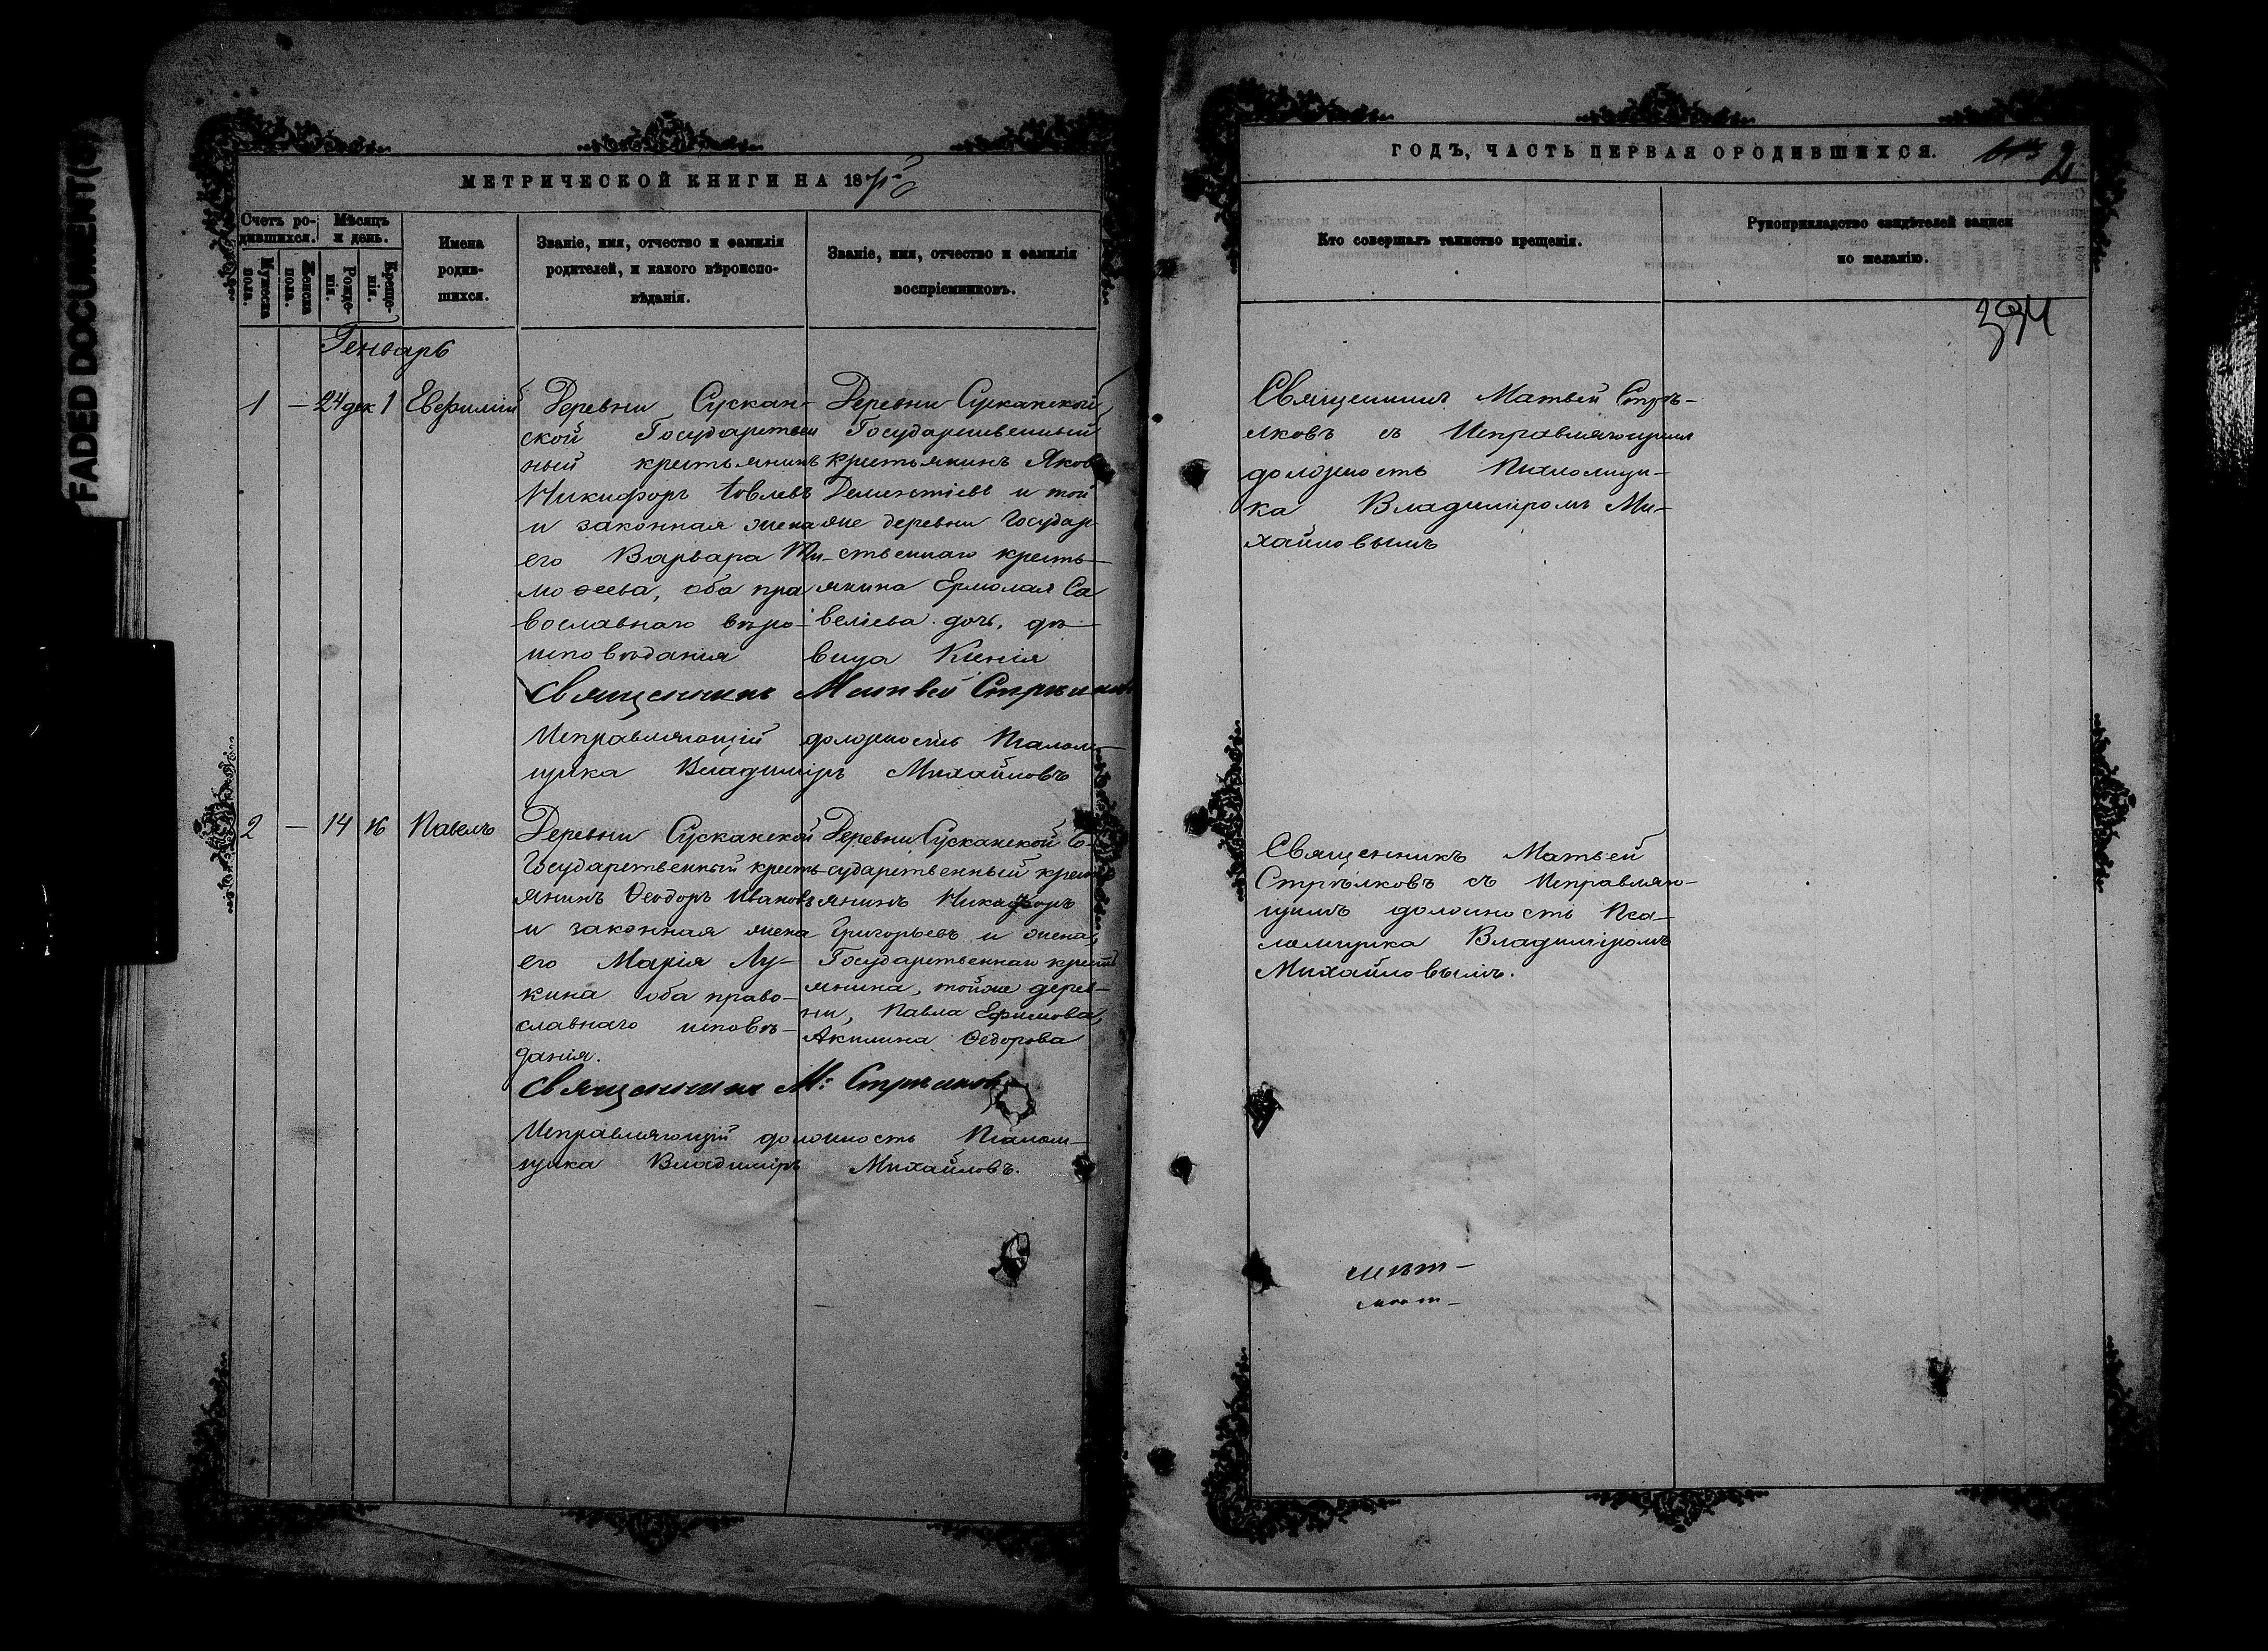 FADED DOCUMENT(S)
МЕТРИЧЕСКОЙ КНИГИ НА 18
Счетъ ро-
дившихся.
Мѣсяцъ
и день.
Мужеска
полъ.
Женска
полъ.
Рожде-
нія.
Креще-
нія.
Имена
родив-
шихся.
Званіе, имя, отчество и фамилія
родителей, и какого вѣроиспо-
вѣданія.
Званіе, имя, отчество и фамилія
воспріемниковъ.
Генварь
1 — 24 дек 1 Евфимій
Деревни Сускан-
ской Государствен
ный крестьянинъ
Никифоръ Іовлевъ
и законная жена
его Варвара Ти-
моѳеева, оба пра
вославнаго вѣро-
исповѣданія
Деревни Сусканской
Государственный
крестьянинъ Яковъ
Дементіевъ и той
же деревни Государ-
ственнаго кресть-
янина Ермолая Са
веліева дочь, дѣ-
вица Ксенія
Священникъ Матвей Стрѣлковъ
Исправляющій должность Псалом-
щика Владиміръ Михайловъ
2 — 14 16 Павелъ
Деревни Сусканской
Государственный кресть-
янинъ Ѳеодоръ Ивановъ
и законная жена
его Марія Лу-
кина оба право-
славнаго исповѣ-
данія.
Деревни Сусканской Го-
сударственный кресть
янинъ Никифоръ
Григорьевъ и жена,
Государственнаго кресть
янина, тойже дерев-
ни, Павла Ефимова,
Акилина Ѳедорова
Священникъ М: Стрѣлковъ
Исправляющій должность Псалом-
щика Владиміръ Михайловъ.
ГОДЪ, ЧАСТЬ ПЕРВАЯ О РОДИВШИХСЯ.
2
Кто совершалъ таинство крещенія.
Рукоприкладство свидѣтелей записи
по желанію.
394
Священникъ Матвей Стрѣ-
лковъ съ Исправляющимъ
должность Псаломщи-
ка Владиміромъ Ми-
хайловымъ
Священникъ Матвей
Стрѣлковъ съ Исправляю-
щимъ должность Пса-
ломщика Владиміромъ
Михайловымъ.